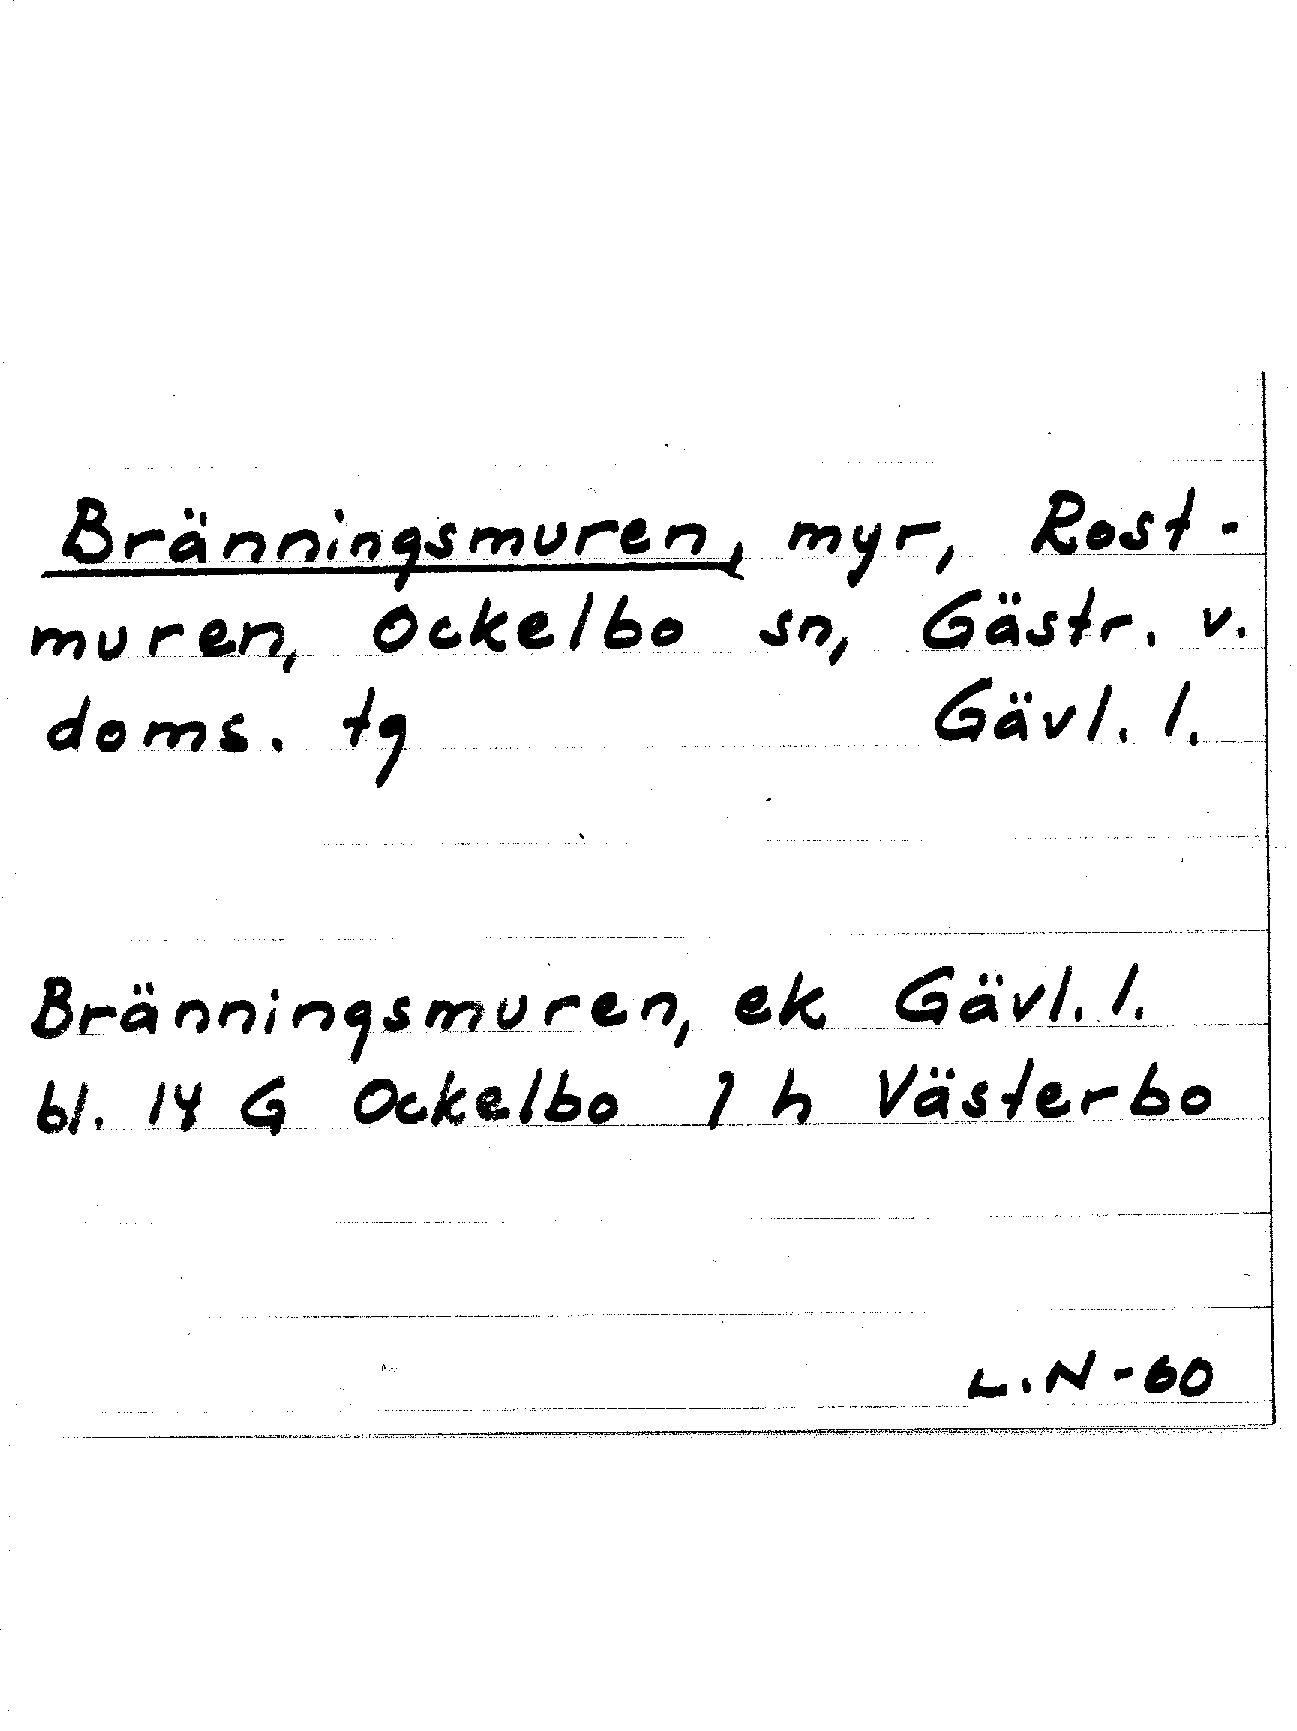 Bränningsmuren, myr, Rost-
muren, Ockelbo sn, Gästr. v.
doms. tg Gävl. l.
Bränningsmuren, ek Gävl. l.
bl. 14 G Ockelbo 1 h Västerbo
L.N-60